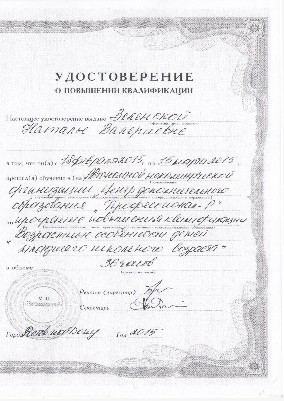 УДОСТОВЕРЕНИЕ
О ПОВЫШЕНИИ КВАЛИФИКАЦИИ
Настоящее удостоверение выдано Зекенской
Наталье Валериевне
в том, что он(а) с 15 февраля 2015 по 15 марта 2015
прошел(а) обучение в (на) Автономной некоммерческой
организации Центр дополнительного
образования "Профессионал-Р"
по программе повышения квалификации
"Возрастные особенности детей
младшего школьного возраста"
в объеме часов
М.П.
Ректор (директор)
Секретарь
Город Ростов-на-Дону Год 2015